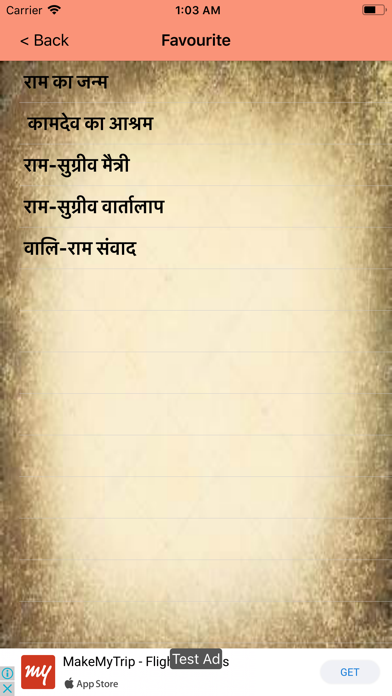 Carrier 1:03 AM
< Back Favourite
राम का जन्म
कामदेव का आश्रम
राम-सुग्रीव मैत्री
राम-सुग्रीव वार्तालाप
वालि-राम संवाद
my MakeMyTrip - Test Ad
App Store
GET